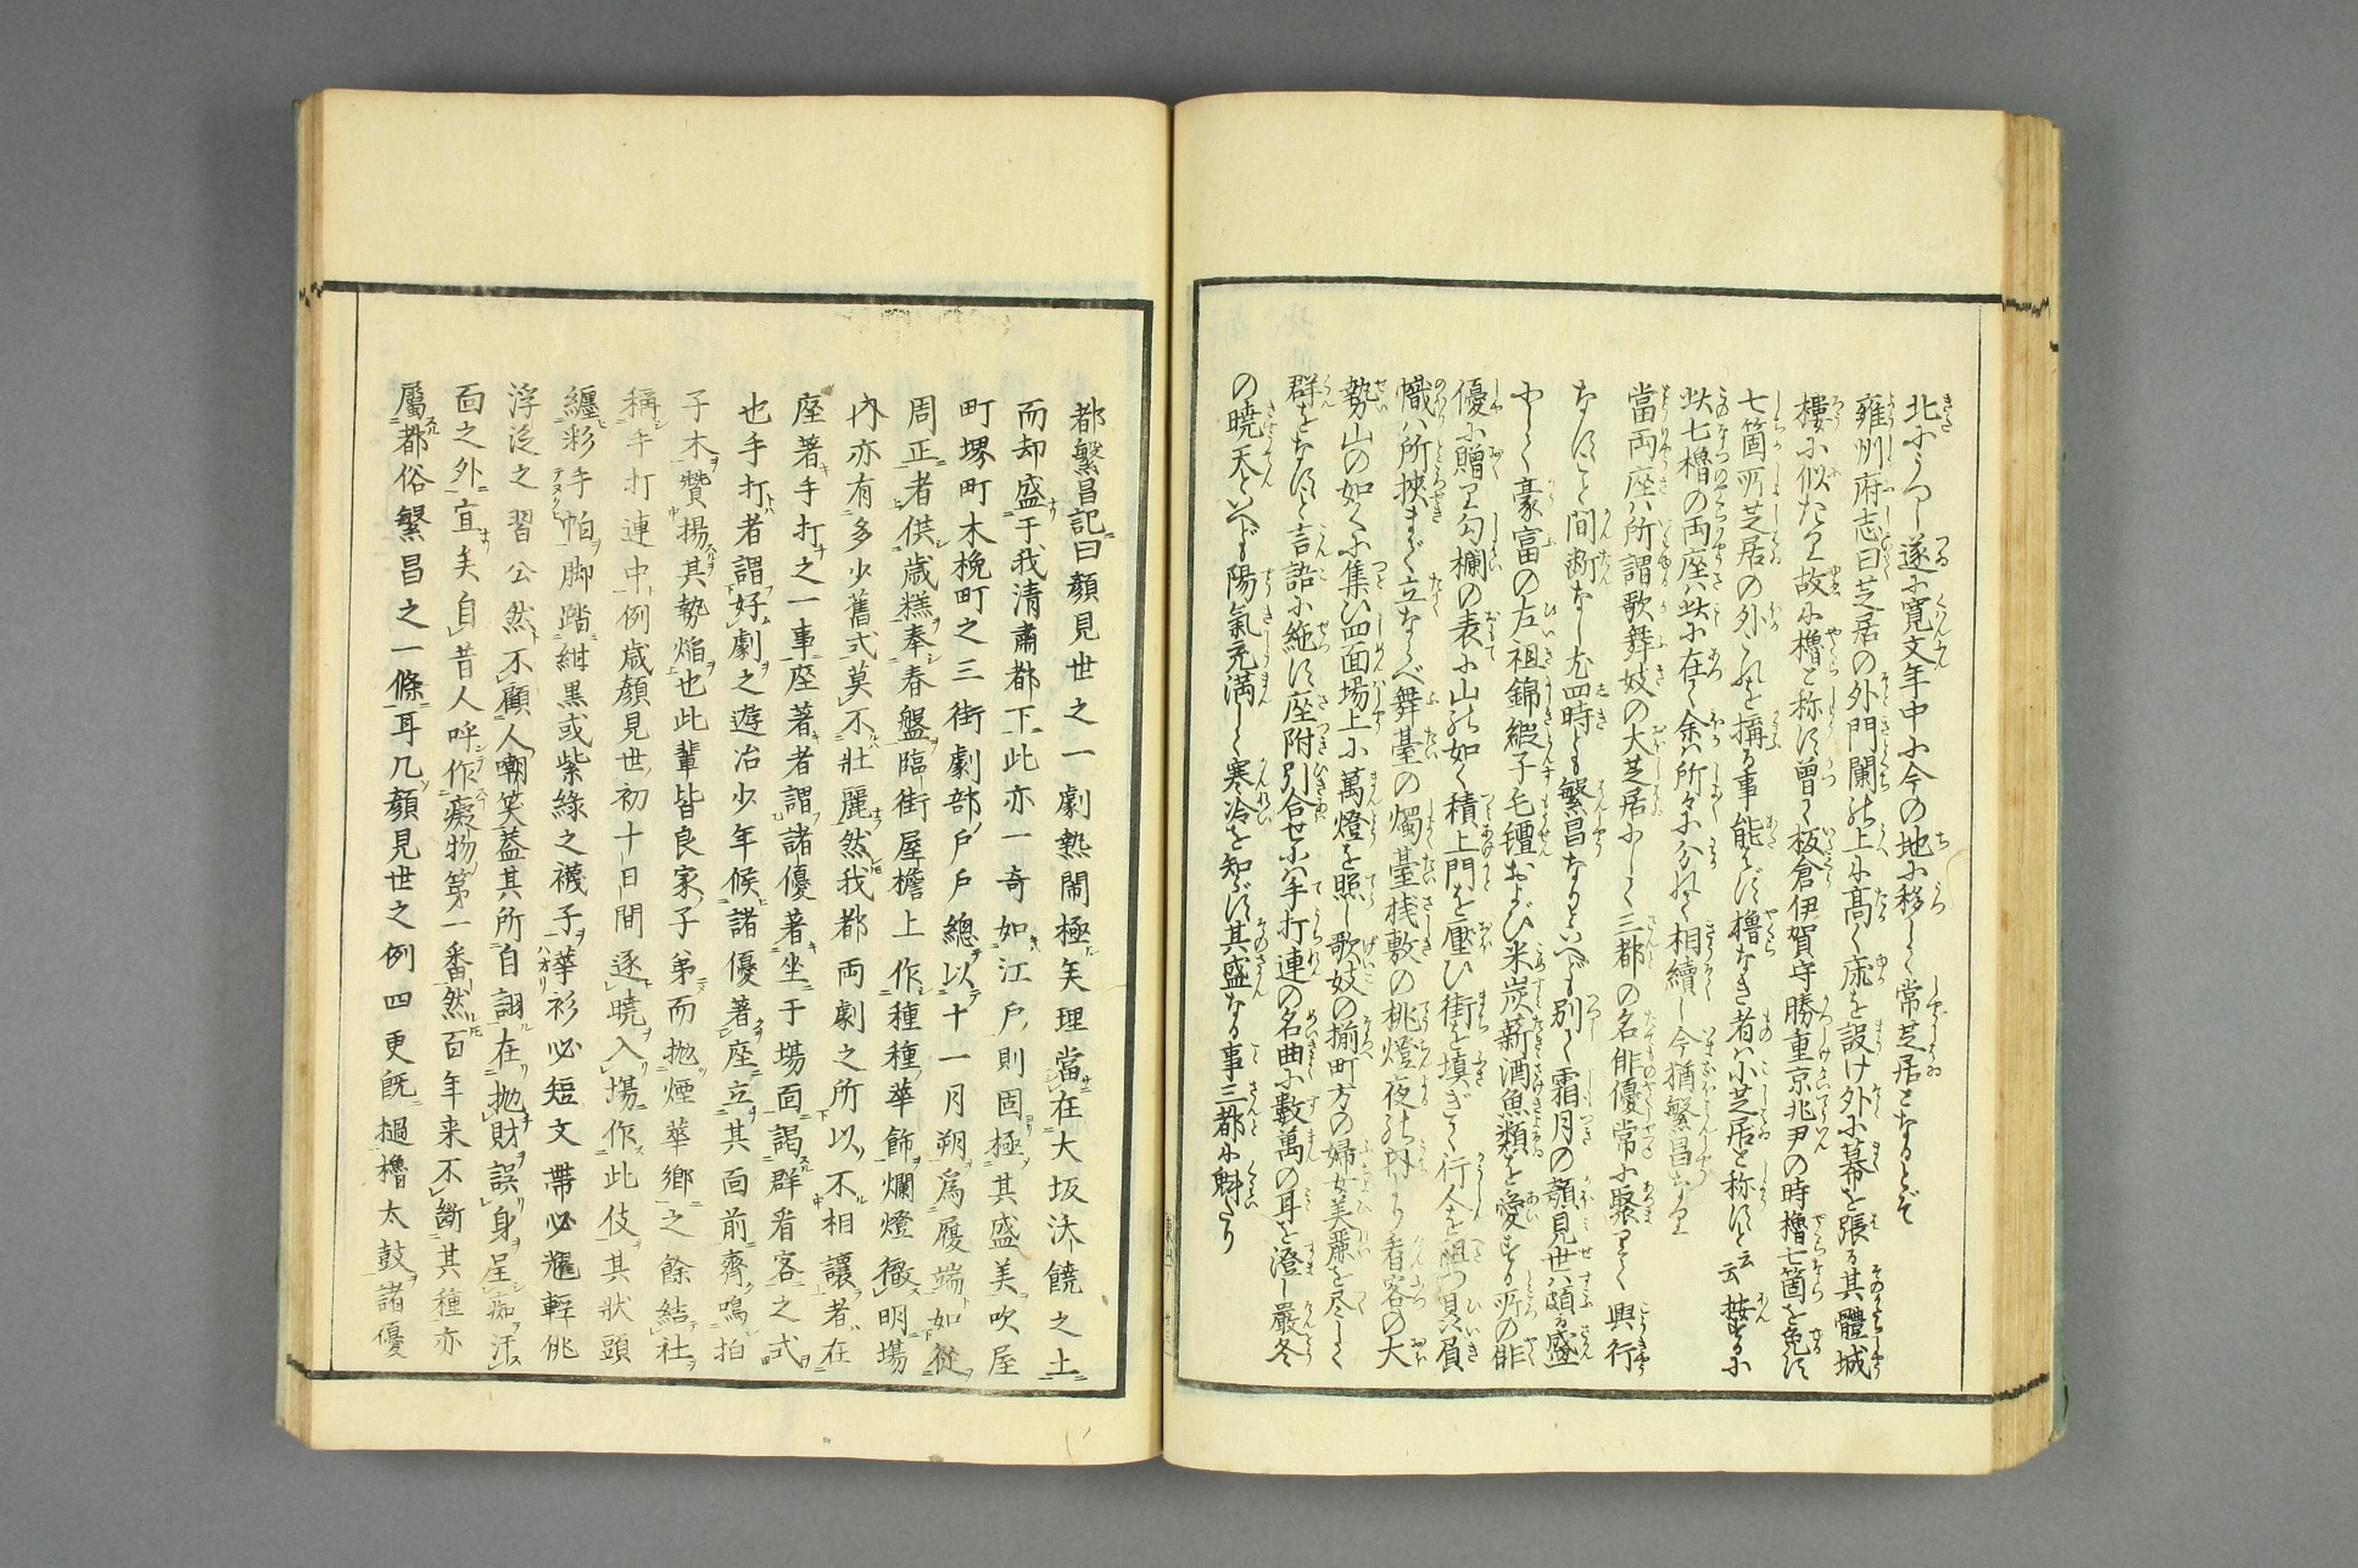 北にうつし遂に寛文年中に今の地に移して常芝居となるとぞ
雍州府志曰芝居の外門闌の上に高く床を設け外に幕を張る其體城
樓に似たり故に櫓と称す曽て板倉伊賀守勝重京兆尹の時櫓七箇を免す
七箇所芝居の外これを搆る事能はず櫓なき者は小芝居と称すと云云按るに
此七櫓の両座は此に在て余は所々に分れて相續し今猶繁昌なり
當両座は所謂歌舞妓の大芝居にして三都の名俳優常に聚りて興行
なすこと間断なし尤四時とも繁昌なりといへども別て霜月の顔見世は頗る盛
にして豪富の左祖錦緞子毛氈および米炭薪酒魚類を愛する所の俳
優に贈り勾欄の表に山の如く積上門を壓ひ街を填ぎて行人を阻つ贔負
幟は所挾まで立ならべ舞臺の燭臺桟敷の桃燈夜の内より看客の大
勢山の如くに集ひ四面場上に萬燈を照し歌妓の揃町方の婦女美麗を尽して
群をなすこと言語に絶す座附引合せには手打連の名曲に數萬の耳を澄し嚴冬
の暁天といへども陽氣充満して寒冷を知らず其盛なる事三都に魁たり
都繁昌記曰顔見世之一劇熱閙極矣理當在大坂沃饒之土
而却盛于我清肅都下此亦一奇如江戸則固極其盛美吹屋
町堺町木挽町之三街劇部戸戸總以十一月朔爲履端如從
周正者供歳糕奉春盤臨街屋檐上作種種華飾爛燈徹明場
内亦有多少舊式莫不壯麗然我都両劇之所以不相讓者在
座著手打之一事座著者謂諸優著坐于場面謁群看客之式
也手打者謂好劇之遊冶少年候諸優著座立其面前齊鳴拍
子木賛揚其勢焔也此輩皆良家子弟而抛煙華郷之餘結社
稱手打連中例歳顔見世初十日間逐曉入場作此伎其狀頭
纏彩手帕脚踏紺黒或紫綠之襪子華衫必短文帶必耀輕佻
浮泛之習公然不顧人嘲笑蓋其所自詡在抛財誤身呈痴汗
面之外宜矣自昔人呼作癡物第一番然百年来不斷其種亦
屬都俗繁昌之一條耳凡顔見世之例四更既撾櫓太鼓諸優